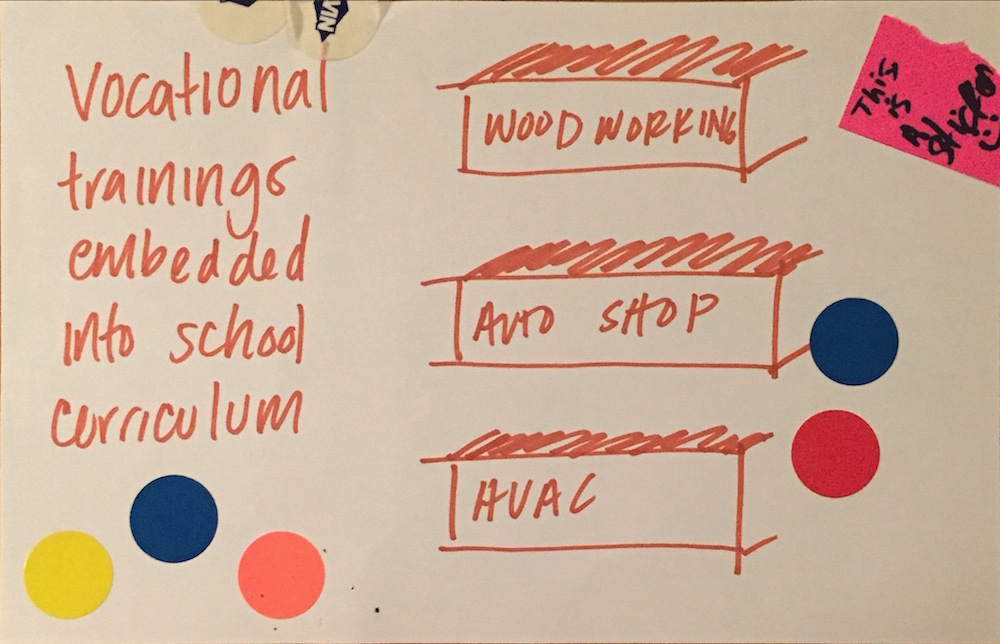 Vocational
trainings
embedded
into school
curriculum
WOODWORKING
AUTO SHOP
HVAC
This
is
a
VIN